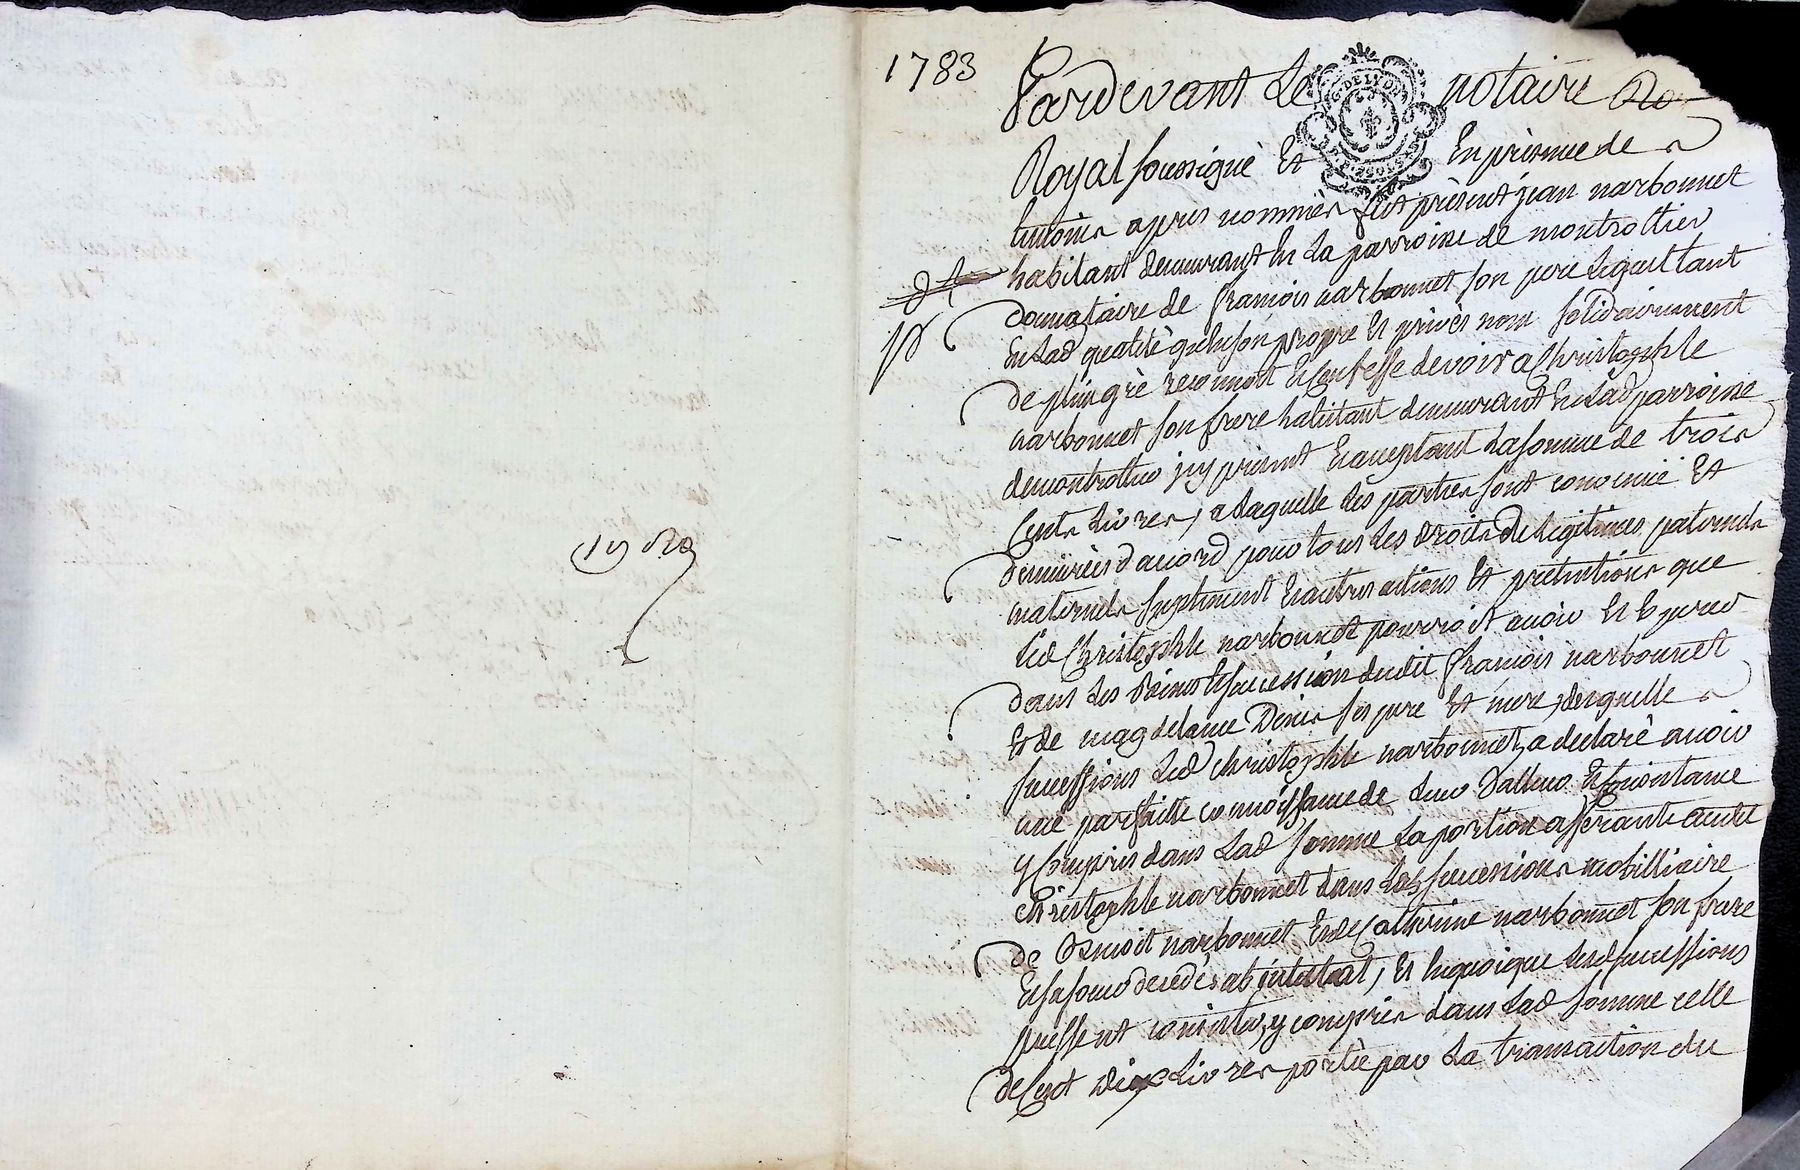 1783
Pardevant Le notaire Ro
Royal soussigné Et En présence de
temoins apres nommés fut présent jean narbonnet
habitant demeurant En La parroisse de montrottier
donnataire de françois narbonnet son pere Lequel tant
En Lad qualité qu'en son propre Et privés nom solidairement
de plein gré reconnoit Et Confesse devoir a Christophle
narbonnet son frere habitant demeurant En Lad parroisse
de montrottier icy présent Et acceptant La somme de trois
Cents Livres, a Laquelle Les parties sont convenüe Et
demeurées d'accord pour tous Les droits De Legitimes paternels
maternels suplement Et autres actions Et pretentions que
Led Christophle narbonnet pourroit avoir Et Esperer
dans Les Biens Et succession dudit françois narbonnet
Et de magdelaine Denis ses pere Et mere, desquelle
successions Led christophle narbonnet a declaré avoir
une parfaitte connoissance de Leur Valleur Et consistance
y Compris dans Lad somme La portion afferante audit
christophle narbonnet dans Les successions mobilliaire
de Benoit narbonnet Et de Catherine narbonnet son frere
Et sa soeur decedés ab intestat, Et En quoique Lesd successions
puissent consister, y compris dans Lad somme celle
de Cent Dix Livres portée par La transaction du